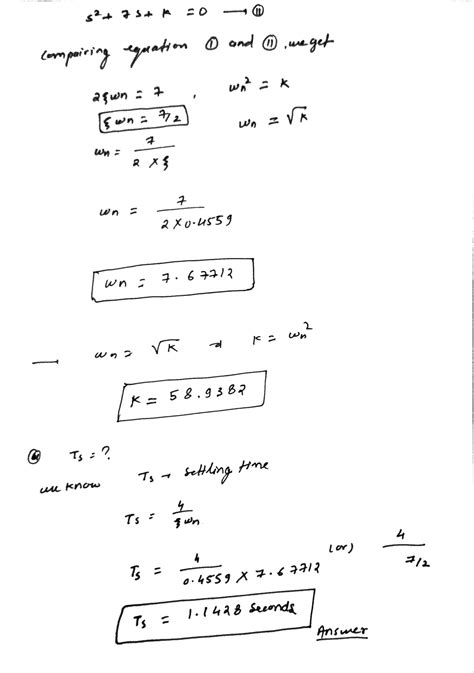 s² + 7s + k = 0 → ⑪
Compairing equation ① and ⑪, we get
2ξωn = 7 , ωn² = k
ξωn = 7/2 ωn = √k
ωn = 7 / (2 × ξ)
ωn = 7 / (2 × 0.4559)
ωn = 7.67712
— ωn = √k ⇒ k = ωn²
k = 58.9382
Ts = ?
we know Ts → settling time
Ts = 4 / ξωn
Ts = 4 / (0.4559 × 7.67712) (or) 4 / (7/2)
Ts = 1.1428 seconds
Answer